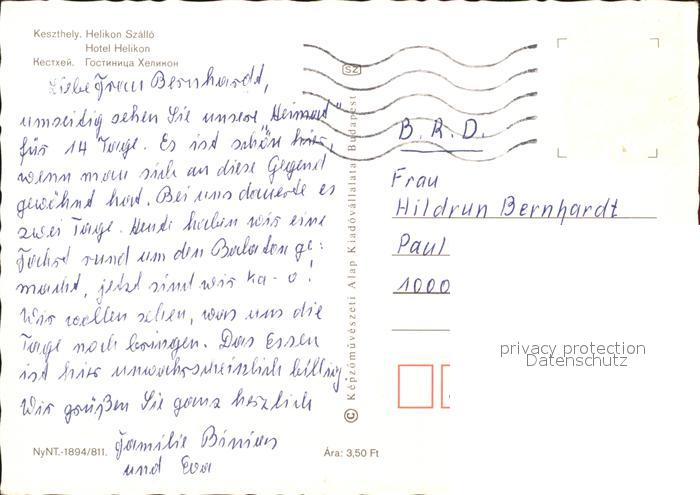 Keszthely. Helikon Szálló
Hotel Helikon
Кестхей. Гостиница Хеликон
Liebe Frau Bernhardt,
umseitig sehen Sie unsere "Heimat"
für 14 Tage. Es ist schön hier,
wenn man sich an diese Gegend
gewöhnt hat. Bei uns dauerte es
zwei Tage. Heute haben wir eine
Fahrt rund um den Balaton ge=
macht, jetzt sind wir ka-o!
Wir wollen sehen, was uns die
Tage noch bringen. Das Essen
ist hier unwahrscheinlich billig.
Wir grüßen Sie ganz herzlich
Familie
und Eva
NyNT.-1894/811.
Ára: 3,50 Ft
SZ
© Képzőművészeti Alap Kiadóvállalata, Budapest
B.R.D.
Frau
Hildrun Bernhardt
Paul
1000
privacy protection
Datenschutz